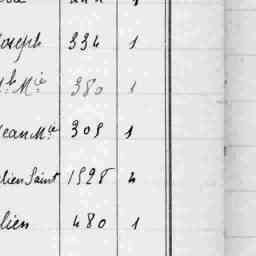 Joseph 334 1
Jh Mie 380 1
Jean Mie 309 1
lien Saint 1528 4
lien 480 1